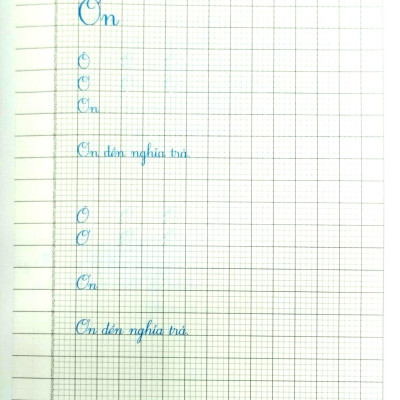 Ơn
Ô
Ơ
Ơn
Ơn đền nghĩa trả.
Ô
Ơ
Ơn
Ơn đền nghĩa trả.